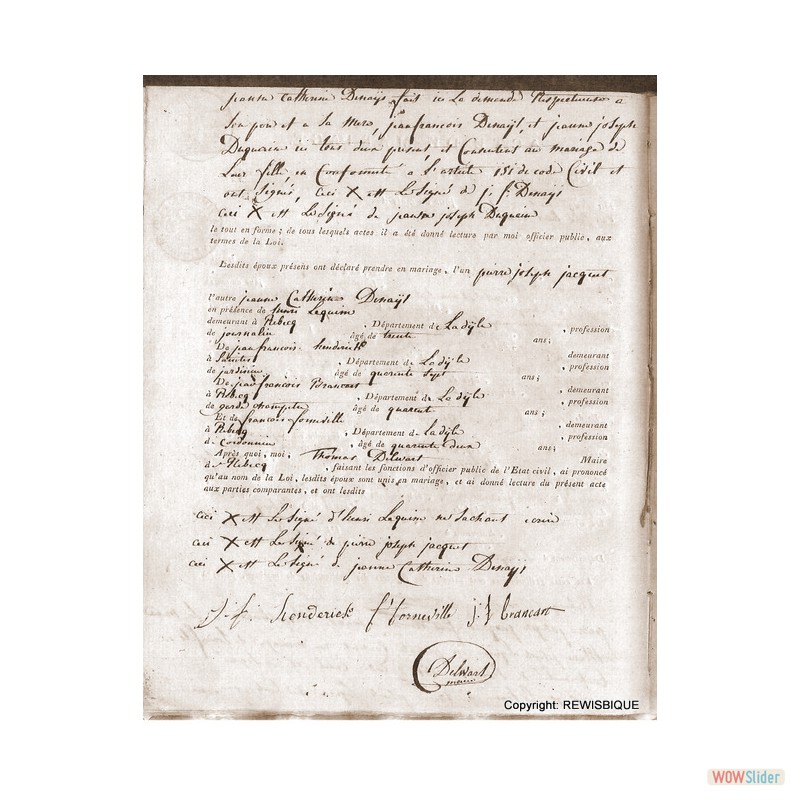 jeanne Catherine Denaÿs fait ici La demande Respectueuse a
Son pere et a sa Mere, jeanfrancois Denaÿs, et jeanne joseph
Duquaine ici tous deux present, et Consentent au mariage de
Leur fille, en Conformité a L'article 151 de code Civil et
ont Signés, Ceci X est Le Signé de j. f. Denaÿs
ceci X est Le Signé de jeanne joseph Duquaine
le tout en forme ; de tous lesquels actes il a été donné lecture par moi officier public, aux
termes de la Loi.
Lesdits époux présens ont déclaré prendre en mariage, l'un pierre joseph jacquet
l'autre jeanne Catherine Denaÿs
en présence de henri Lequime
demeurant à Rebecq , Département de La dÿle , profession
de journalier âgé de trente ans ;
De jean francois henderick demeurant
à Saintes , Département de La dÿle , profession
de jardinier âgé de quarente Sept ans ;
De jean francois Brancart , demeurant
à Rebecq , Département de La dÿle , profession
de garde champetre âgé de quarent ans ;
Et de francois forneville , demeurant
à Rebecq , Département de La dÿle , profession
de Cordonnier , âgé de quarente deux ans ;
Après quoi, moi, Thomas Delwart Maire
d e Rebecq , faisant les fonctions d'officier public de l'Etat civil, ai prononcé
qu'au nom de la Loi, lesdits époux sont unis en mariage, et ai donné lecture du présent acte
aux parties comparantes, et ont lesdits
ceci X est Le Signé d'henri Lequime ne Sachant ecrire
ceci X est Le Signé de pierre joseph jacquet
ceci X est Le Signé de jeanne Catherine Denaÿs
j. f. henderick f forneville j. f brancart
Delwart
maire
Copyright: REWISBIQUE
WOWSlider